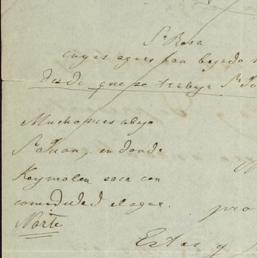 Sta Rosa
cuyas aguas han bajado
desde que se trabaja Sn Juan
Mucho mes abajo
Sn Juan, en donde
Reymolen saca con
comodidad el agua.
Norte
pro
Estas y